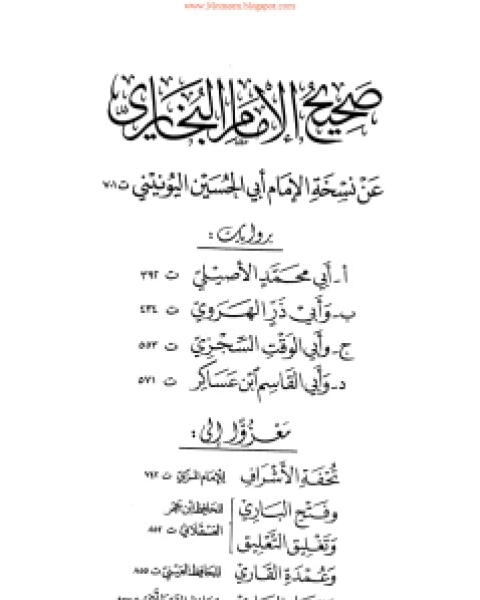 صَحِيحُ الإِمَامِ البُخَارِيّ
عَنْ نُسْخَةِ الإِمَامِ أَبِي الحُسَيْنِ اليُونِيني ت ٧٠١
بروايات :
أ - أَبي محمَّد الأَصيليّ ت ٣٩٢
ب - وَأَبيْ ذَرٍّ الهَرَويّ ت ٤٣٤
ج - وأَبي الوَقْتِ السِّجْزِيّ ت ٥٥٣
د - وَأَبي القَاسِم ابْن عَسَاكِر ت ٥٧١
مَعْزُوًّا إلى :
تُحْفَةِ الأَشْرَافِ للإمام المزّيّ ت ٧٤٢
وفَتْحِ البَارِيْ للحَافظ ابن حَجَر
العَسْقَلاني ت ٨٥٢
وَتَغْلِيقِ التَّعْلِيقِ
وَعُمْدَةِ القَارِيْ للحَافِظ العَيْنيّ ت ٨٥٥